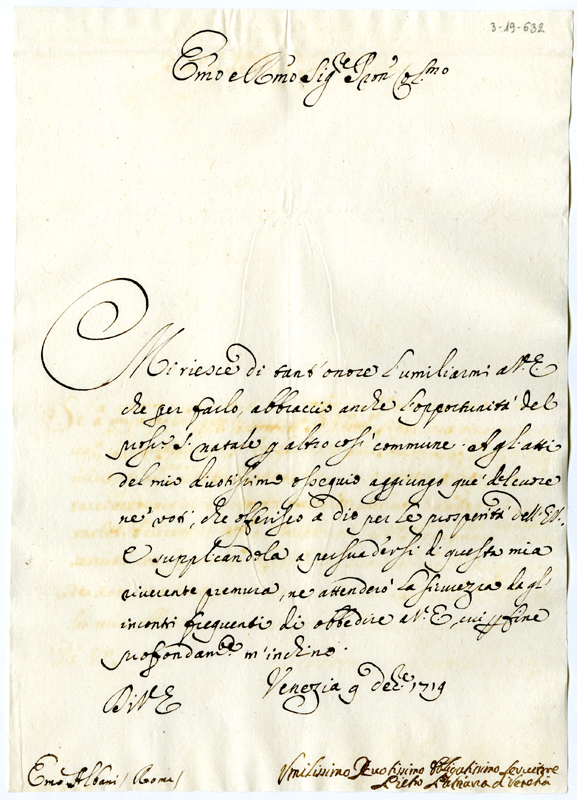 3-19-632
Emo e Rmo Sigre Pron Colmo
Mi riesce di tant'onore l'umiliarmi a V. E.
che per farlo, abbraccio anche l'opportunità del
pross. S. natale p altro così commune. Agl'atti
del mio divotissimo ossequio aggiungo que' del cuore
ne' voti, che offerisco a Dio per le prosperità dell'E.V.
E supplicandola a persuadersi di questa mia
riverente premura, ne attenderò la sicurezza dagl'
incontri frequenti di obbedire a V. E., cui p fine
profondamte m'inchino.
Di V. E. Venezia 9 decre 1719
Emo Albani / Roma /
Umilissimo Devotissimo Obligatissimo Servitore
Pietro Patriarca di Venetia